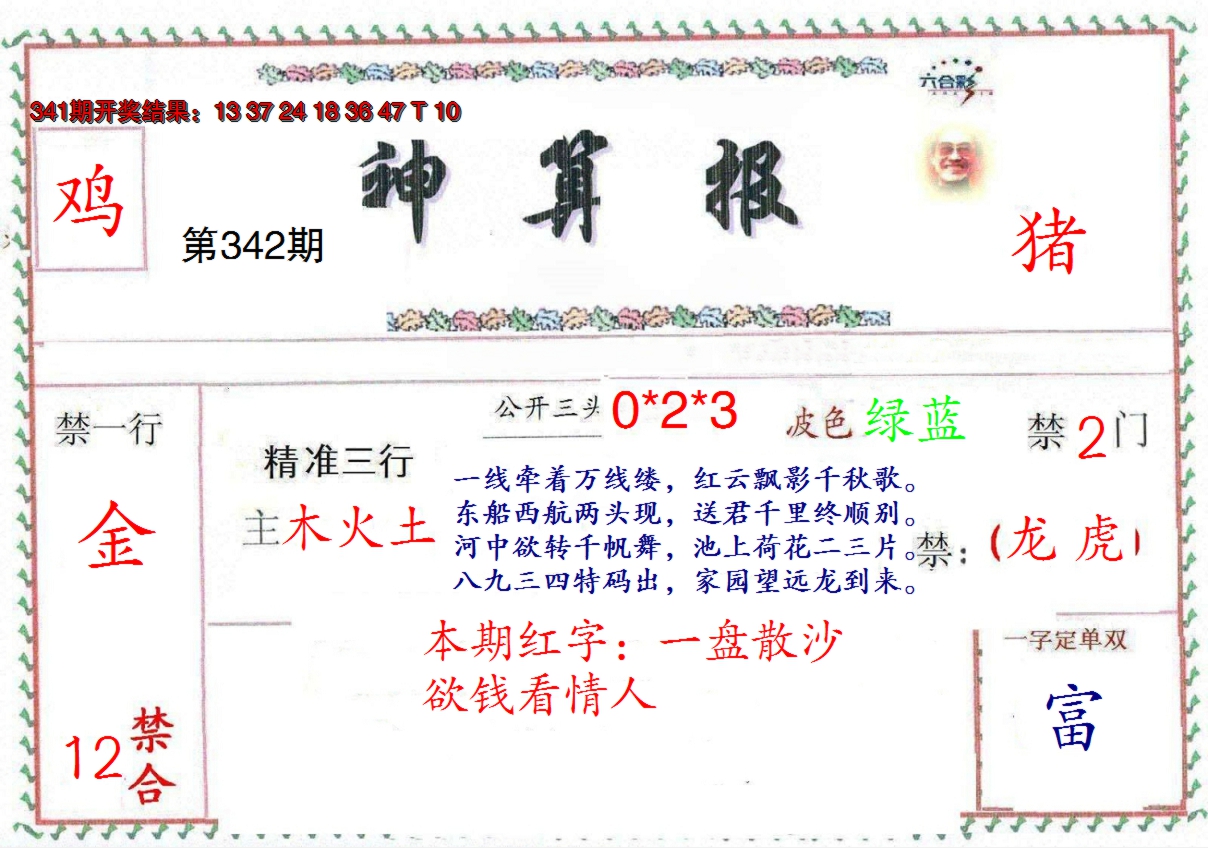 六合彩
341期开奖结果：13 37 24 18 36 47 T 10
鸡
神算报
第342期
猪
禁一行
金
12禁合
公开三头 0*2*3
波色 绿蓝
禁2门
精准三行
主木火土
一线牵着万线缕，红云飘影千秋歌。
东船西航两头现，送君千里终顺别。
河中欲转千帆舞，池上荷花二三片。
八九三四特码出，家园望远龙到来。
禁：（龙 虎）
本期红字：一盘散沙
欲钱看情人
一字定单双
富